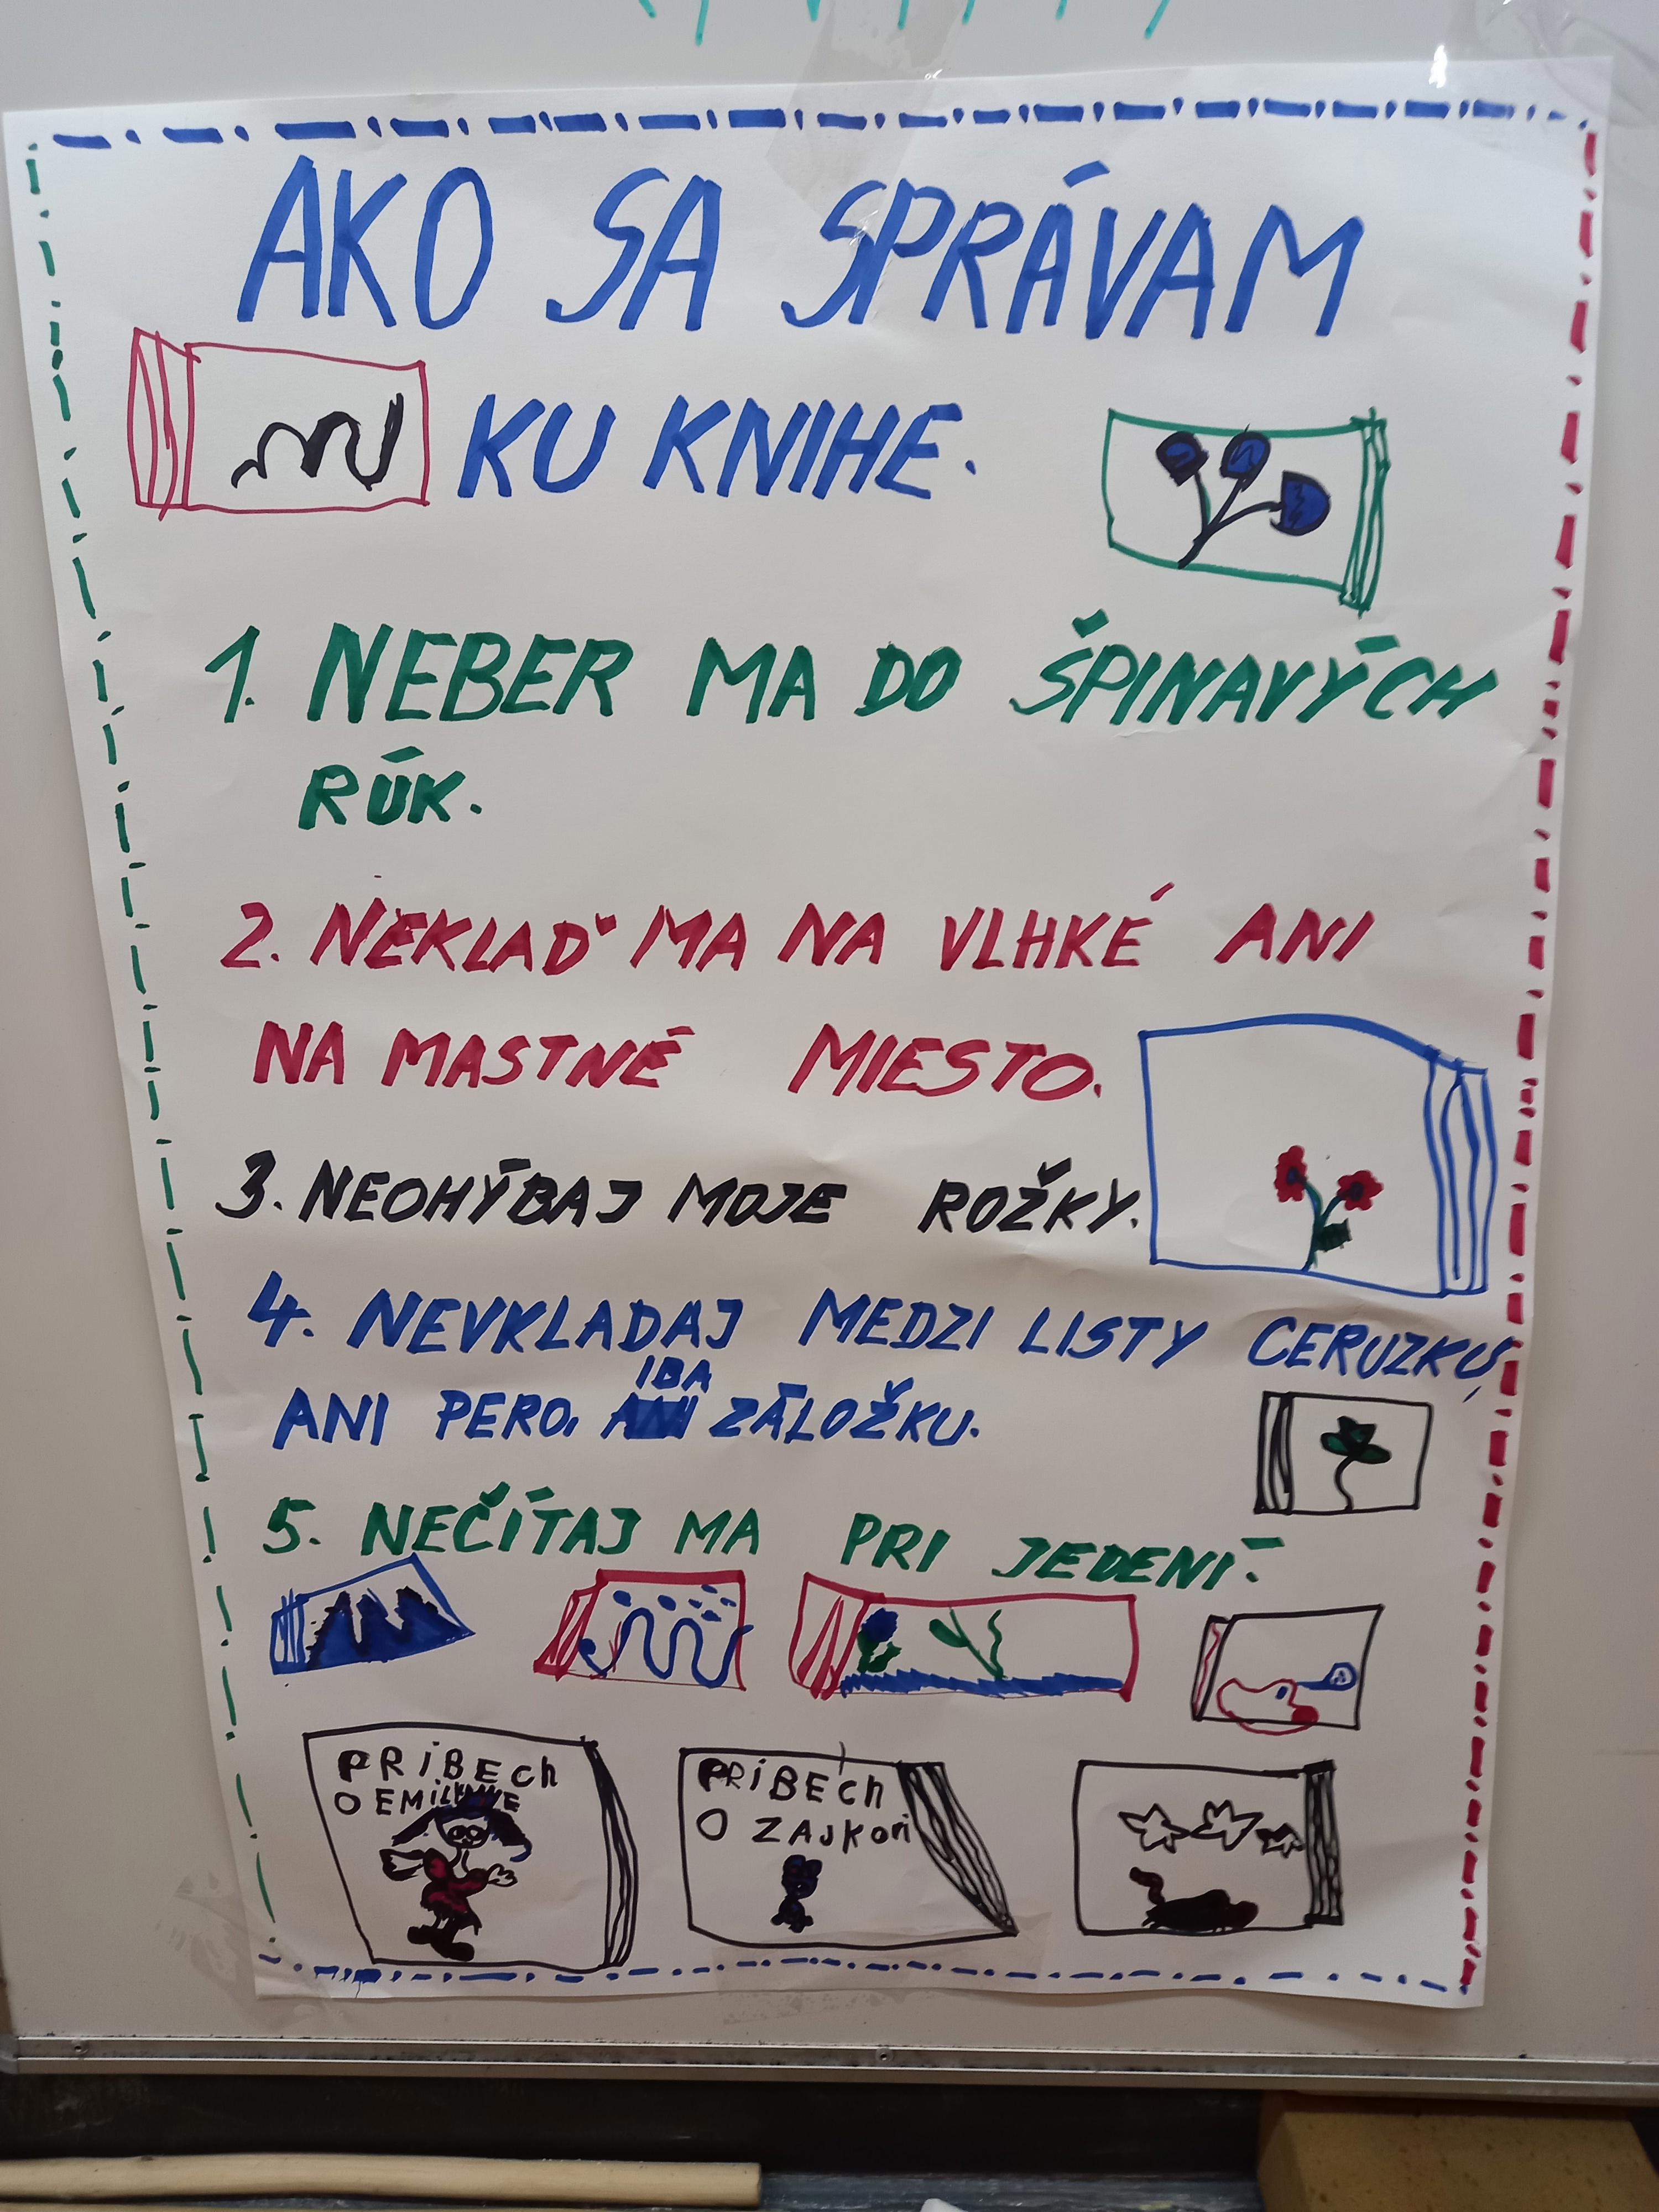 AKO SA SPRÁVAM
KU KNIHE.
1. NEBER MA DO ŠPINAVÝCH
RÚK.
2. NEKLAĎ MA NA VLHKÉ ANI
NA MASTNÉ MIESTO.
3. NEOHÝBAJ MOJE ROŽKY.
4. NEVKLADAJ MEDZI LISTY CERUZKU,
ANI PERO, IBA ZÁLOŽKU.
5. NEČÍTAJ MA PRI JEDENÍ.
PRiBECh
O
PRiBECh
O ZAJKovi